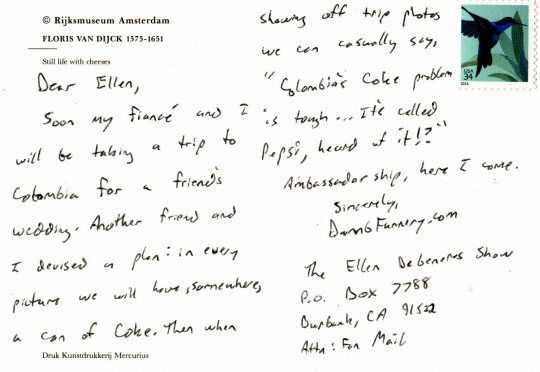 © Rijksmuseum Amsterdam
FLORIS VAN DIJCK 1575-1651
Still life with cheeses
Dear Ellen,
Soon my fiancé and I
will be taking a trip to
Colombia for a friend's
wedding. Another friend and
I devised a plan: in every
picture we will have, somewhere,
a can of Coke. Then when
Druk Kunstdrukkerij Mercurius
showing off trip photos
we can casually say,
"Colombia's Coke problem
is tough... It's called
Pepsi, heard of it!?"
Ambassadorship, here I come.
Sincerely,
DumbFunnery.com
The Ellen DeGeneres Show
P.O. Box 7788
Burbank, CA 91522
Attn: Fan Mail
USA
34
2014